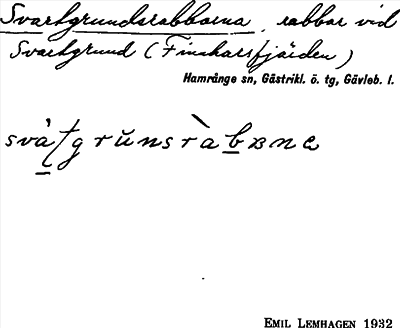 Svartgrundsrabbarna, rabbar vid
Svartgrund (Finnharsfjärden)
Hamrånge sn, Gästrikl. ö. tg, Gävleb. l.
svàʈgrŭnsràbɐnɐ
EMIL LEMHAGEN 1932